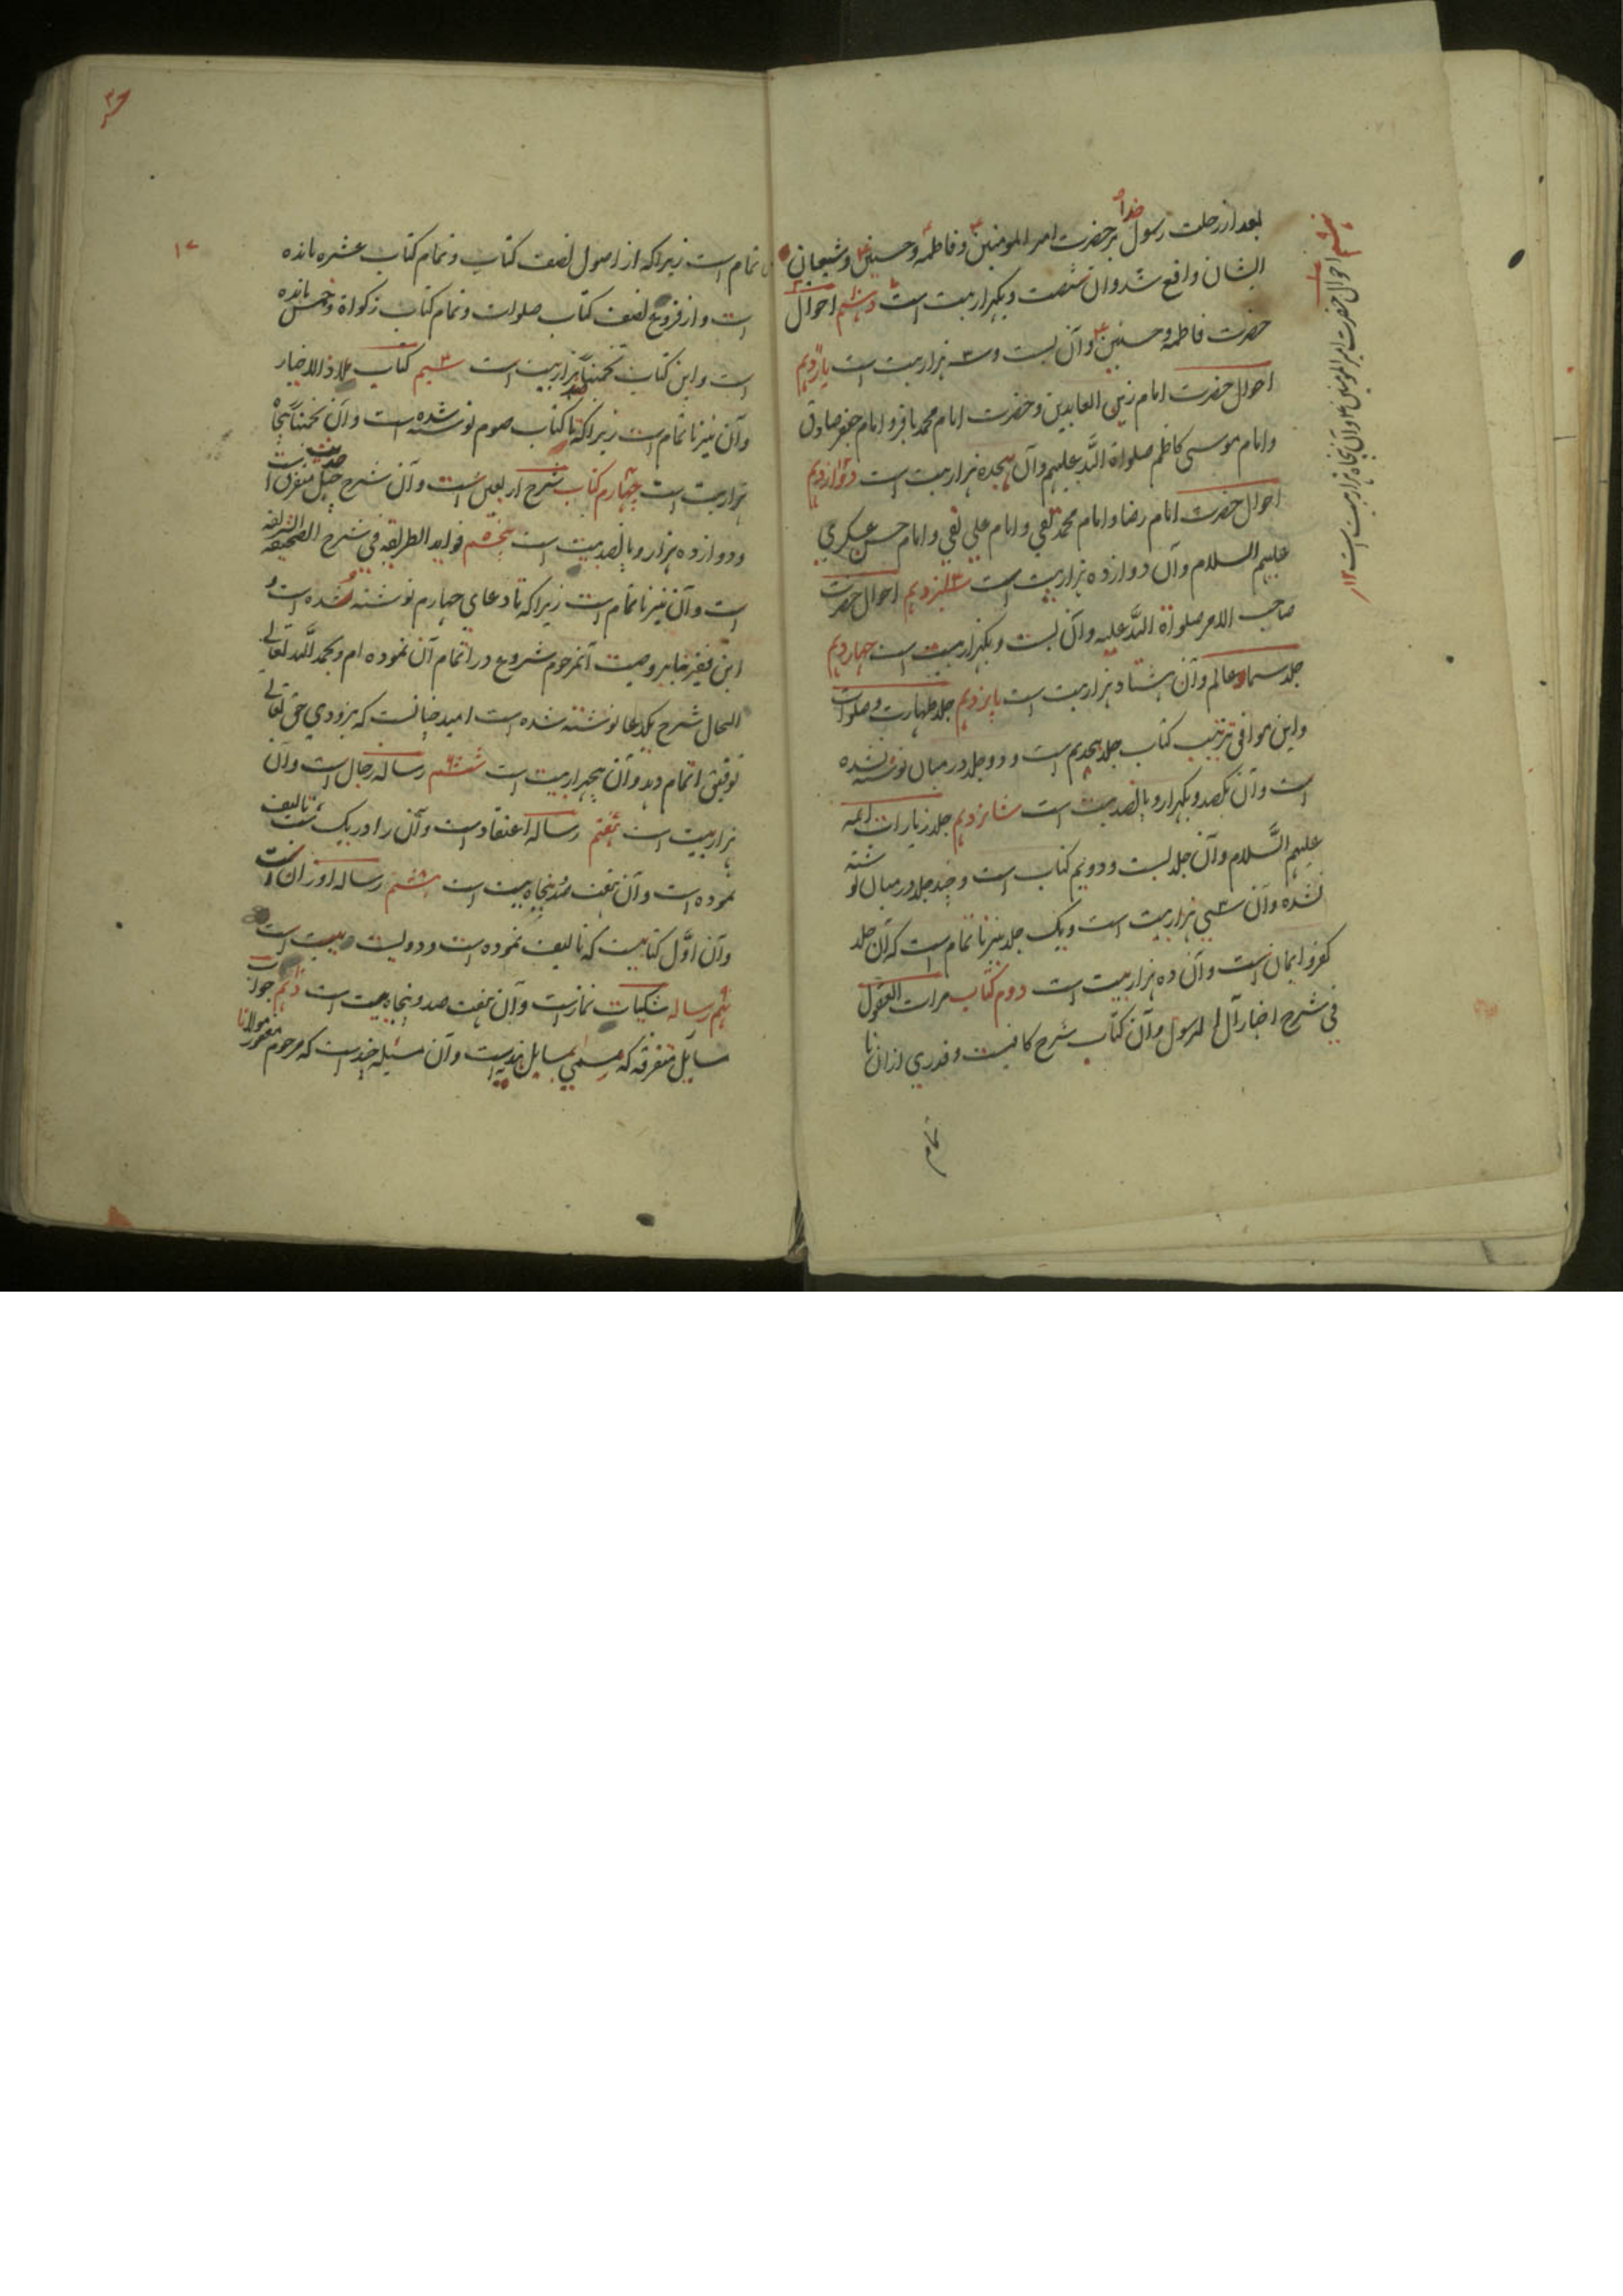 بعد از رحلت رسول خدا بر حضرت امیر المومنین و فاطمه و حسنین و شیعیان
ایشان واقع شد و آن شصت و یکهزار بیت است دهم احوال
حضرت فاطمه و حسنین و آن بست و سه هزار بیت است یازدهم
احوال حضرت امام زین العابدین و حضرت امام محمد باقر و امام جعفر صادق
و امام موسی کاظم صلواة الله علیهم و آن هیجده هزار بیت است دوازدهم
احوال حضرت امام رضا و امام محمد تقی و امام علی نقی و امام حسن عسکری
علیهم السلام و آن دوازده هزار بیت است سیزدهم احوال حضرت
صاحب الامر صلواة الله علیه و آن بست و یکهزار بیت است چهاردهم
جلد سماء و عالم و آن هشتاد هزار بیت است پانزدهم جلد طهارت و صلوات
و این موافق ترتیب کتاب جلد هیجدهم است و دو جلد در میان نوشته نشده
است و آن یکصد و یکهزار و پانصد بیت است شانزدهم جلد زیارات ائمه
علیهم السَّلام و آن جلد بست و دویم کتاب است و چند جلد در میان نوشته
نشده و آن سی هزار بیت است و یک جلد نیز ناتمام است که آن جلد
کفر و ایمان است و آن ده هزار بیت است دوم کتاب مرات العقول
فی شرح اخبار آل الرسول و آن کتاب شرح کافیست و قدری از ان نا
تمام
هشتم احوال حضرت امیر المومنین و آن پنجاه هزار بیت است ۱۲
تمام است زیرا که از اصول نصف کتاب و تمام کتاب عشره مانده
است و از فروع نصف کتاب صلوات و تمام کتاب زکواة و خمس مانده
است و این کتاب تخمیناً هزار بیت است سیم کتاب ملاذ الاخیار
و آن نیز ناتمام است زیرا که تا کتاب صوم نوشته شده است و آن تخمیناً پنجاه
هزار بیت است چهارم کتاب شرح اربعین است و آن شرح چهل حدیث متفرق است
و دوازده هزار و پانصد بیت است پنجم فواید الطریقه فی شرح الصحیفه الشریفه
است و آن نیز ناتمام است زیرا که تا دعای چهارم نوشته شده است و
این فقیر بنابر وصیت آنمرحوم شروع در اتمام آن نموده ام و بحمد الله تعالی
الحال شرح یکدعا نوشته شده است امید چنانست که بزودی حق تعالی
توفیق اتمام دهد و آن پنجهزار بیت است ششم رساله رجال است و آن
هزار بیت است هفتم رساله اعتقاد است و آن را در یک شب تالیف
نموده است و آن هفت صد و پنجاه بیت است هشتم رساله اوزان است
و آن اوَّل کتابیست که تالیف نموده است و دویست بیت است
نهم رساله شکیات نماز است و آن هفت صد و پنجاه بیت است دهم جواب
مسایل متفرقه که مسمی بمسایل هندیه است و آن مسئله چند است که مرحوم مغفور مولانا